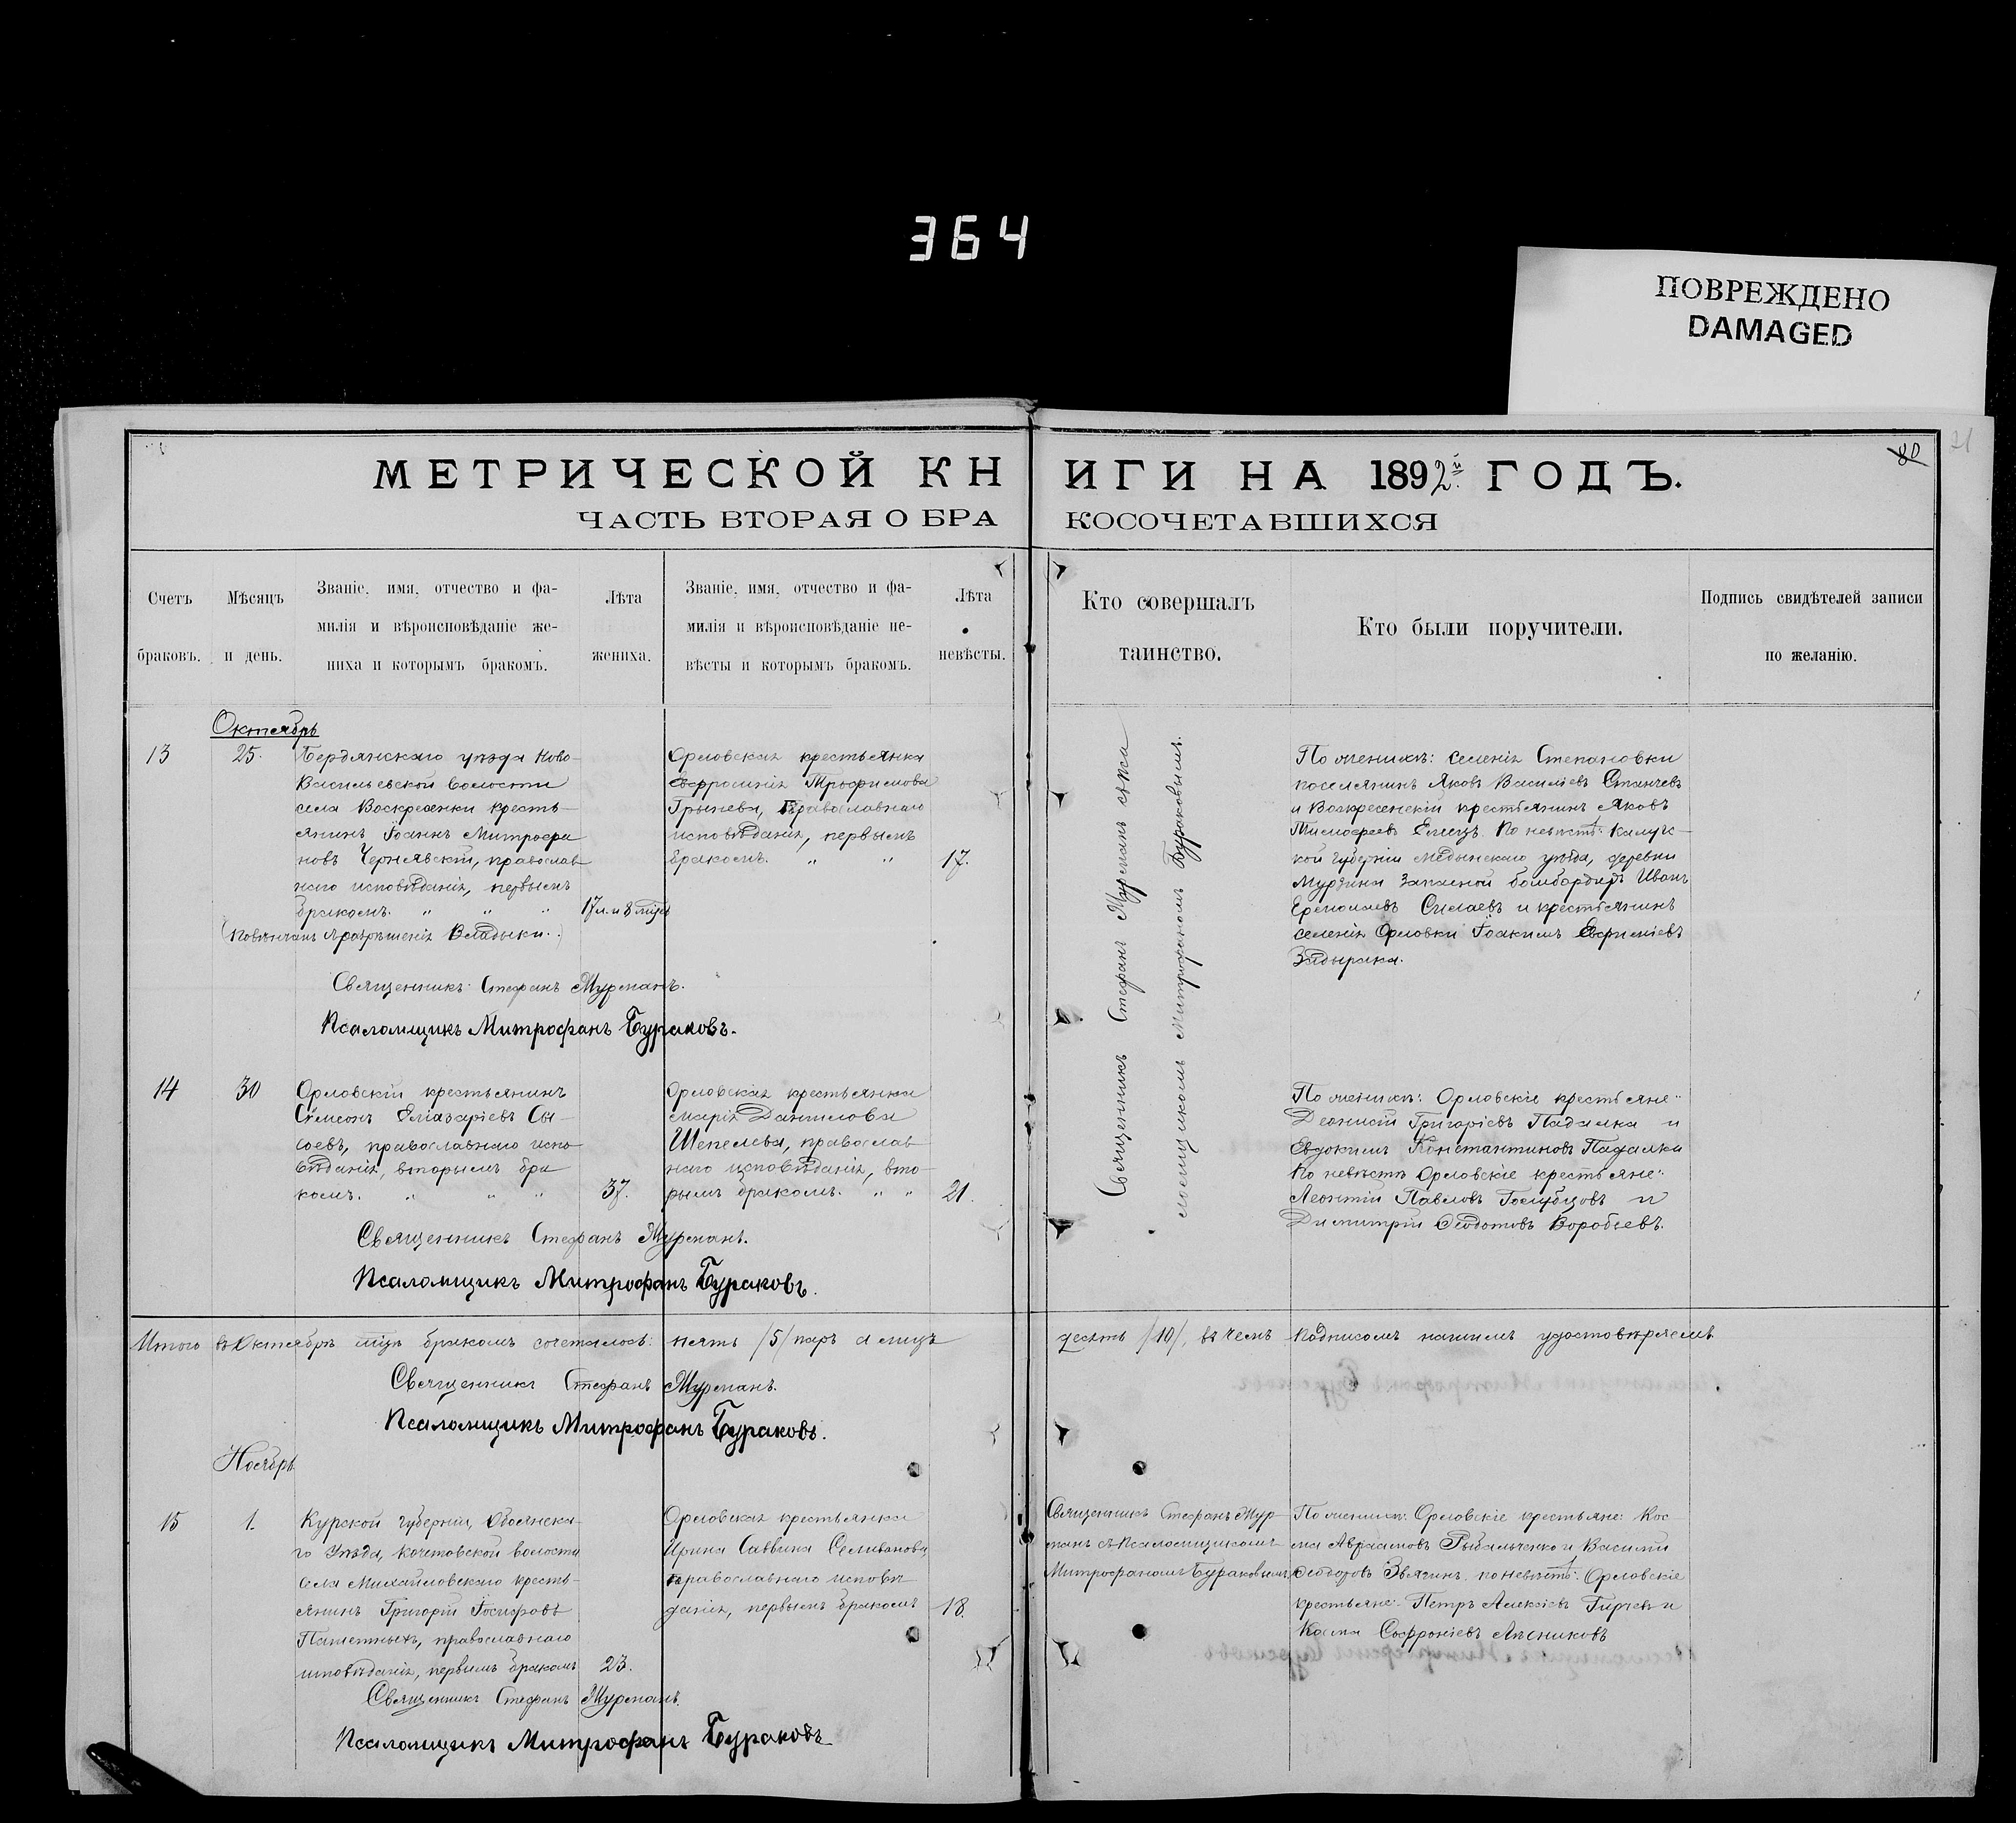 364
ПОВРЕЖДЕНО
DAMAGED
80
21
МЕТРИЧЕСКОЙ КНИГИ НА 1892й ГОДЪ.
ЧАСТЬ ВТОРАЯ О БРАКОСОЧЕТАВШИХСЯ
Счетъ
браковъ.
Мѣсяцъ
и день.
Званіе, имя, отчество и фа-
милія и вѣроисповѣданіе же-
ниха и которымъ бракомъ.
Лѣта
жениха.
Званіе, имя, отчество и фа-
милія и вѣроисповѣданіе не-
вѣсты и которымъ бракомъ.
Лѣта
невѣсты.
Кто совершалъ
таинство.
Кто были поручители.
Подпись свидѣтелей записи
по желанію.
Октябрь
13
25.
Бердянскаго уѣзда Ново-
Васильевской волости
села Воскресенки кресть-
янинъ Іоаннъ Митрофа
новъ Чернявскій, православ
наго исповѣданія, первымъ
бракомъ. " " "
17 л. и 8 мѣс
Повѣнчанъ разрѣшенія Владыки.
Орловская крестьянка
Евфросинія Трофимова
Грынева, Православнаго
исповѣданія, первымъ
бракомъ. " "
17.
Священникъ Стефанъ Мурманъ съ пса
ломщикомъ Митрофаномъ Бураковымъ.
По женихѣ: селенія Степановки
поселянинъ Яковъ Васильевъ Станчевъ
и Воскресенскій крестьянинъ Яковъ
Тимофеевъ Емецъ. По невѣстѣ: Калуж-
кой губерніи Медынскаго уѣзда, деревни
Мурзина Запасной бомбардиръ Иванъ
Ермолаевъ Силаевъ и крестьянинъ
селенія Орловки Іоакимъ Евфиміевъ
Задырака.
Священникъ: Стефанъ Мурманъ.
Псаломщикъ Митрофанъ Бураковъ.
14
30
Орловскій крестьянинъ
Сѵмеонъ Еліазаріевъ Сы-
соевъ, православнаго испо
вѣданія, вторымъ бра
комъ. " " "
37.
Орловская крестьянка
Марія Данилова
Шепелева, православ
наго исповѣданія, вто-
рымъ бракомъ. " "
21.
По женихѣ: Орловскіе крестьяне:
Деонисій Григоріевъ Падалка и
Евдокимъ Константиновъ Падалка
По невѣстѣ Орловскіе крестьяне:
Леонтій Павловъ Голубцовъ и
Димитрій Ѳеодотовъ Воробьевъ.
Священникъ Стефанъ Мурманъ.
Псаломщикъ Митрофанъ Бураковъ.
Итого въ Октябрѣ мѣцѣ бракомъ сочеталось: пять /5/ паръ а лицъ десять /10/, въ чемъ подписомъ нашимъ удостовѣряемъ
Священникъ Стефанъ Мурманъ.
Псаломщикъ Митрофанъ Бураковъ.
Ноябрь
15
1.
Курской губерніи, Обоянска-
го Уѣзда, Кочетовской волости
села Михайловскаго кресть-
янинъ Григорій Іосифовъ
православнаго
исповѣданія, первымъ бракомъ
23.
Орловская крестьянка
Ирина Саввина Селиванова,
православнаго исповѣ
данія, первымъ бракомъ
18.
Священникъ Стефанъ Мур-
манъ съ Псаломщикомъ
Митрофаномъ Бураковымъ
По женихѣ: Орловскіе крестьяне: Кос-
ма Авраамовъ Рыбальченко и Василій
Ѳеодоровъ Звягинъ. по невѣстѣ: Орловскіе
крестьяне: Петръ Алексіевъ и
Косма Софроніевъ
Священникъ Стефанъ Мурманъ.
Псаломщикъ Митрофанъ Бураковъ